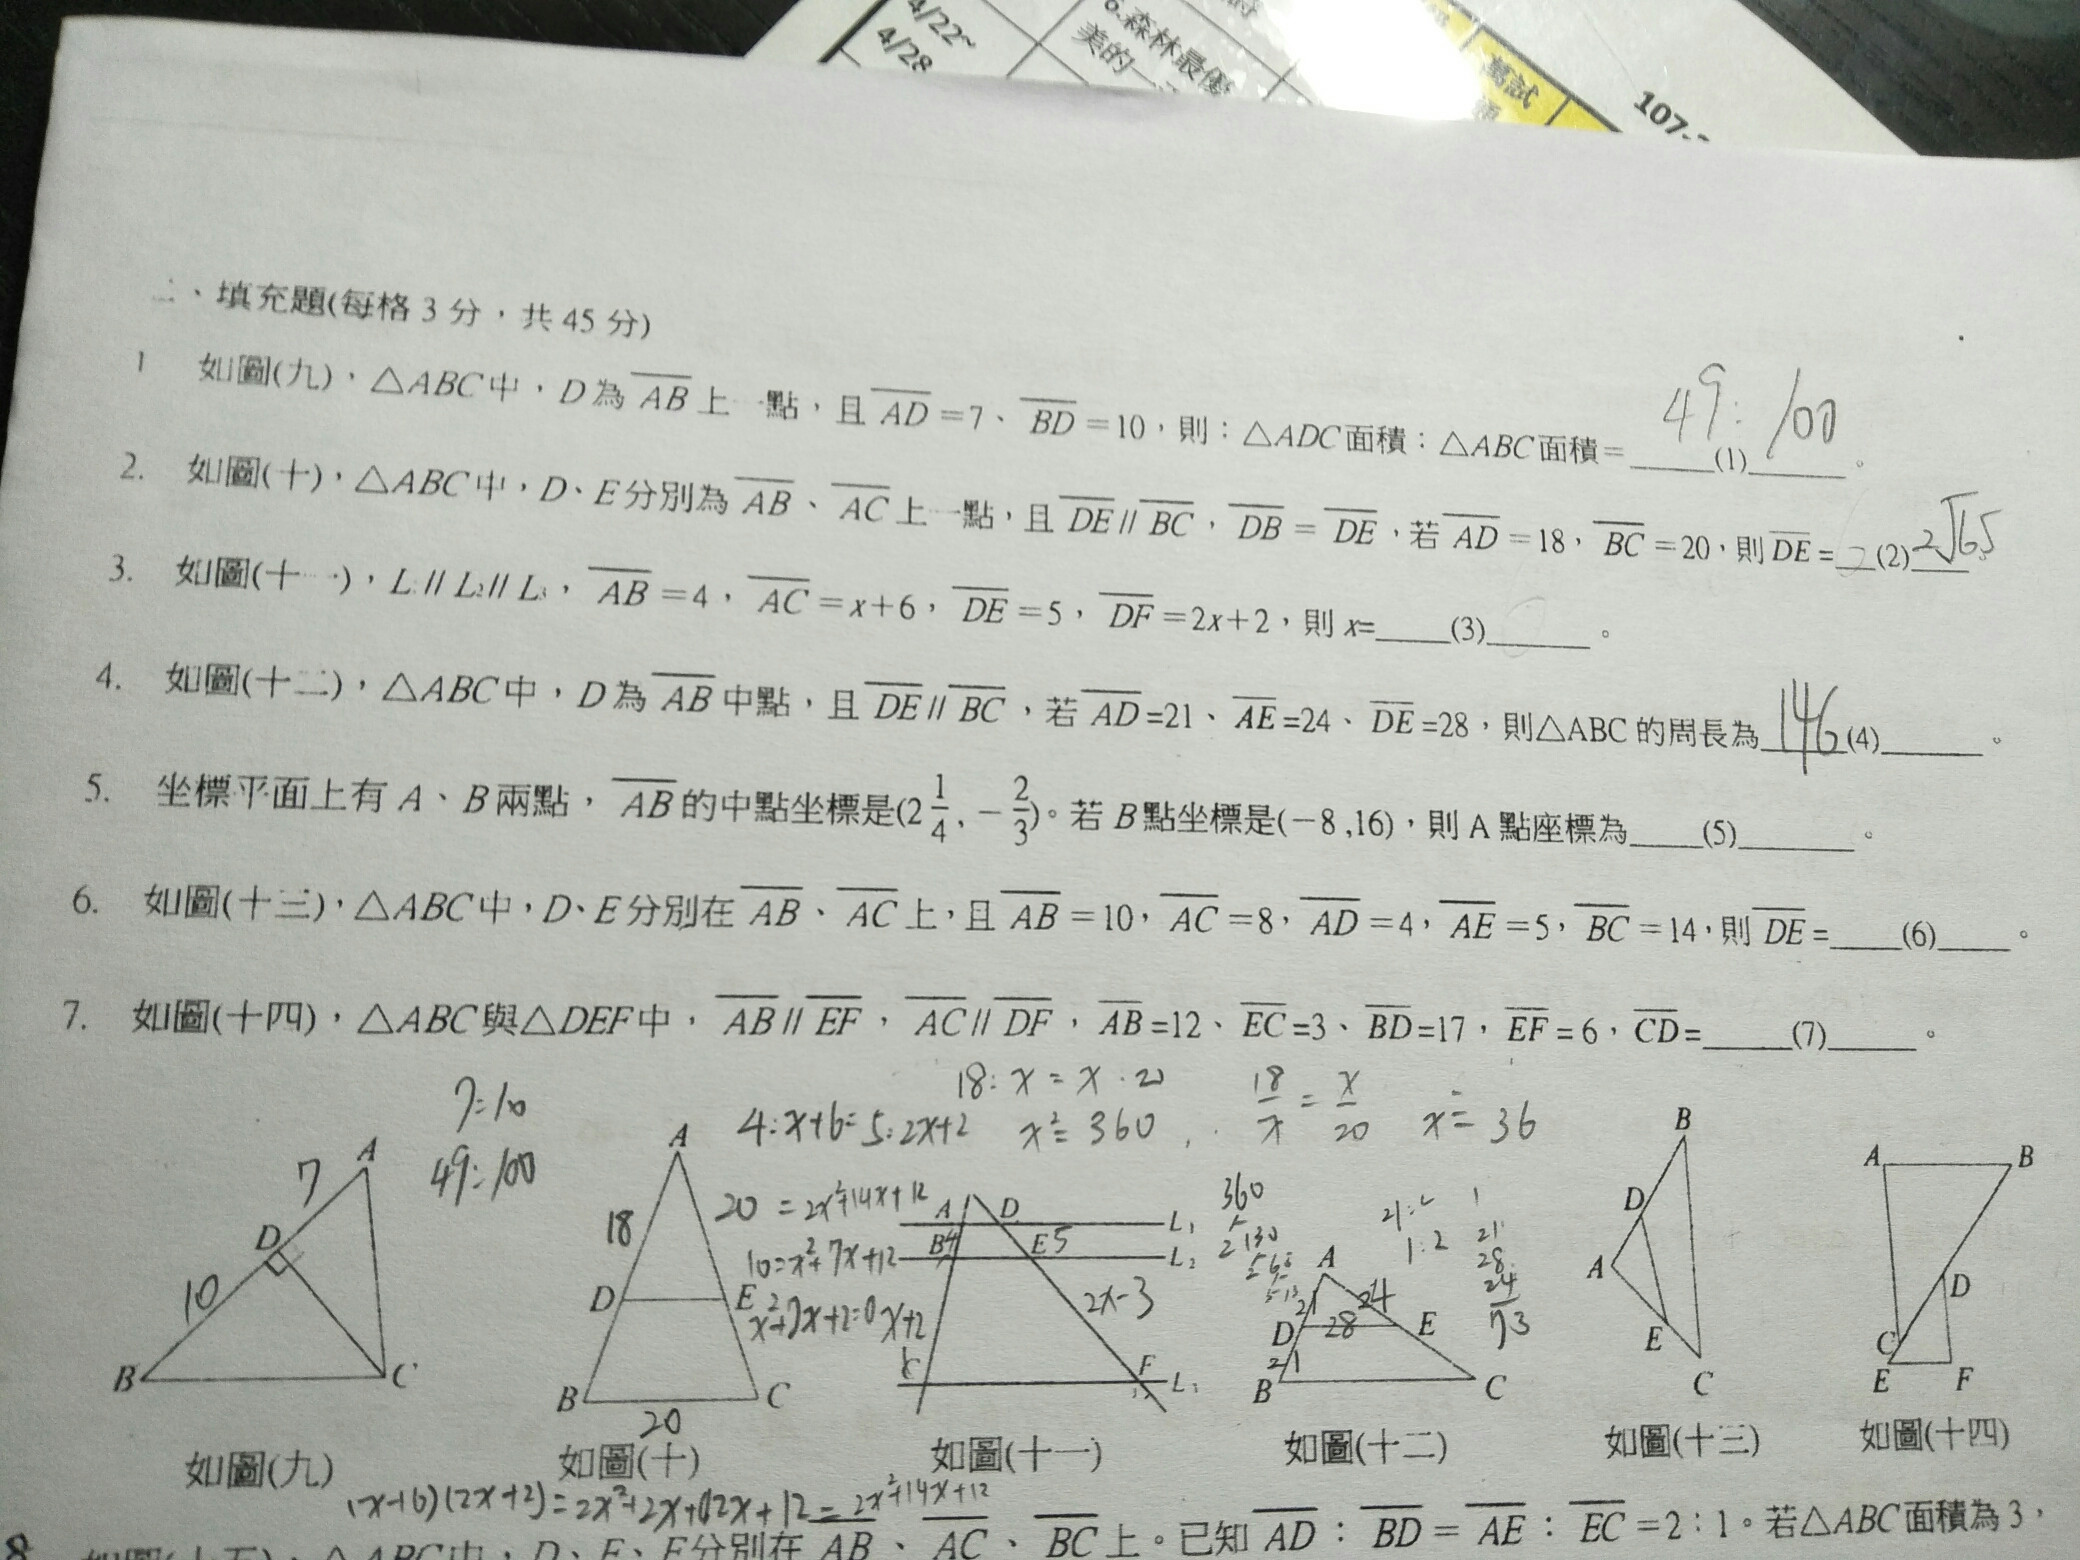 4/22~
4/28
6.森林最優
美的一
107-
、填充題(每格 3 分，共 45 分)
1 如圖(九)，△ABC中，D為AB上一點，且AD=7、BD=10，則：△ADC面積：△ABC面積=____(1)____。 49:100
2. 如圖(十)，△ABC中，D、E分別為AB、AC上一點，且DE//BC，DB=DE，若AD=18，BC=20，則DE=__(2)__ 2√65
3. 如圖(十一)，L//L₂//L₃，AB=4，AC=x+6，DE=5，DF=2x+2，則 x=____(3)____。
4. 如圖(十二)，△ABC中，D為AB中點，且DE//BC，若AD=21、AE=24、DE=28，則△ABC的周長為 146 (4)____。
5. 坐標平面上有A、B兩點，AB的中點坐標是(2 1/4, －2/3)。若B點坐標是(－8,16)，則A點座標為____(5)____。
6. 如圖(十三)，△ABC中，D、E分別在AB、AC上，且AB=10，AC=8，AD=4，AE=5，BC=14，則DE=____(6)____。
7. 如圖(十四)，△ABC與△DEF中，AB//EF，AC//DF，AB=12、EC=3、BD=17，EF=6，CD=____(7)____。
7:10
49:100
18:x=x:20
x²=360
18/x = x/20
x²=36
4:x+6=5:2x+2
20=2x²+14x+12
10=x²+7x+12
x²+7x+2=0
360
2 130
21:
1:2
21
28
24
73
A 7 D 10 B C
A 18 D E B C 20
A D L₁
B 4 E 5 L₂
x+2 2x-3
C F L₃
A 21 24 D 28 E 21 B C
B D A E C
A B D C E F
如圖(九)
如圖(十)
如圖(十一)
如圖(十二)
如圖(十三)
如圖(十四)
(x+6)(2x+2)=2x²+2x+12x+12=2x²+14x+12
8 如圖(十五)，△ABC中，D、E、F分別在AB、AC、BC上。已知AD：BD=AE：EC=2：1。若△ABC面積為3，